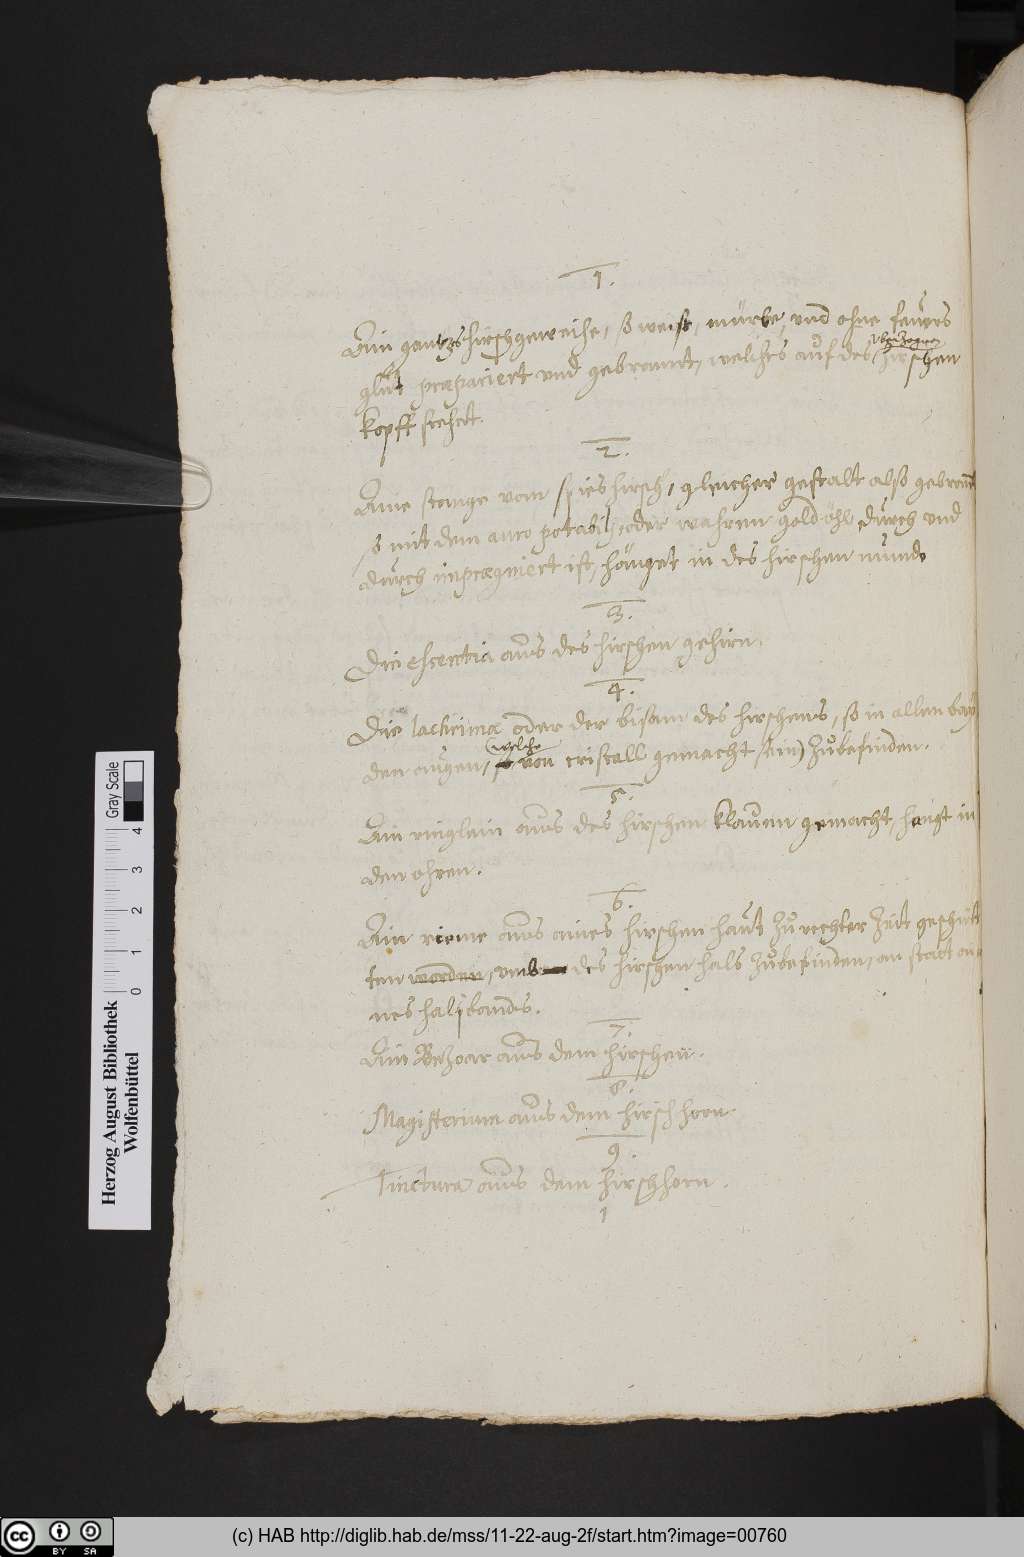 1.
Ain gantzs hirschgeweihe, so weiß, mürbe, und ohne feuers
überzognen
glut præpariert und gebrannt, welches auf des hirschen
kopff stehet.
2.
Aine stange vom spieshirsch, gleicher gestalt also gebrent
so mit dem auro potabili, oder wahren gold öhl durch und
durch imprægniert ist, hanget in des hirschen munde
3.
Die essentia aus des hirschen gehirn.
4.
Die lachrimæ oder der bisam des hirschens, so in allen bay
welche
den augen, von cristall gemacht sein) zubefinden.
5.
Ain ringlein aus des hirschen klauen gemacht, hengt in
den ohren.
6.
Ain rieme aus aines hirschen haut zu rechter zeit geschnit
ten worden, umb des hirschen hals zubefinden, an statt ai
nes halsbands.
7.
Ain Bezoar aus dem hirschen.
8.
Magisterium aus dem hirschhorn.
9.
Tinctura aus dem hirschhorn.
1
Herzog August Bibliothek
Wolfenbüttel
Gray Scale
0 1 2 3 4
cc BY SA
(c) HAB http://diglib.hab.de/mss/11-22-aug-2f/start.htm?image=00760